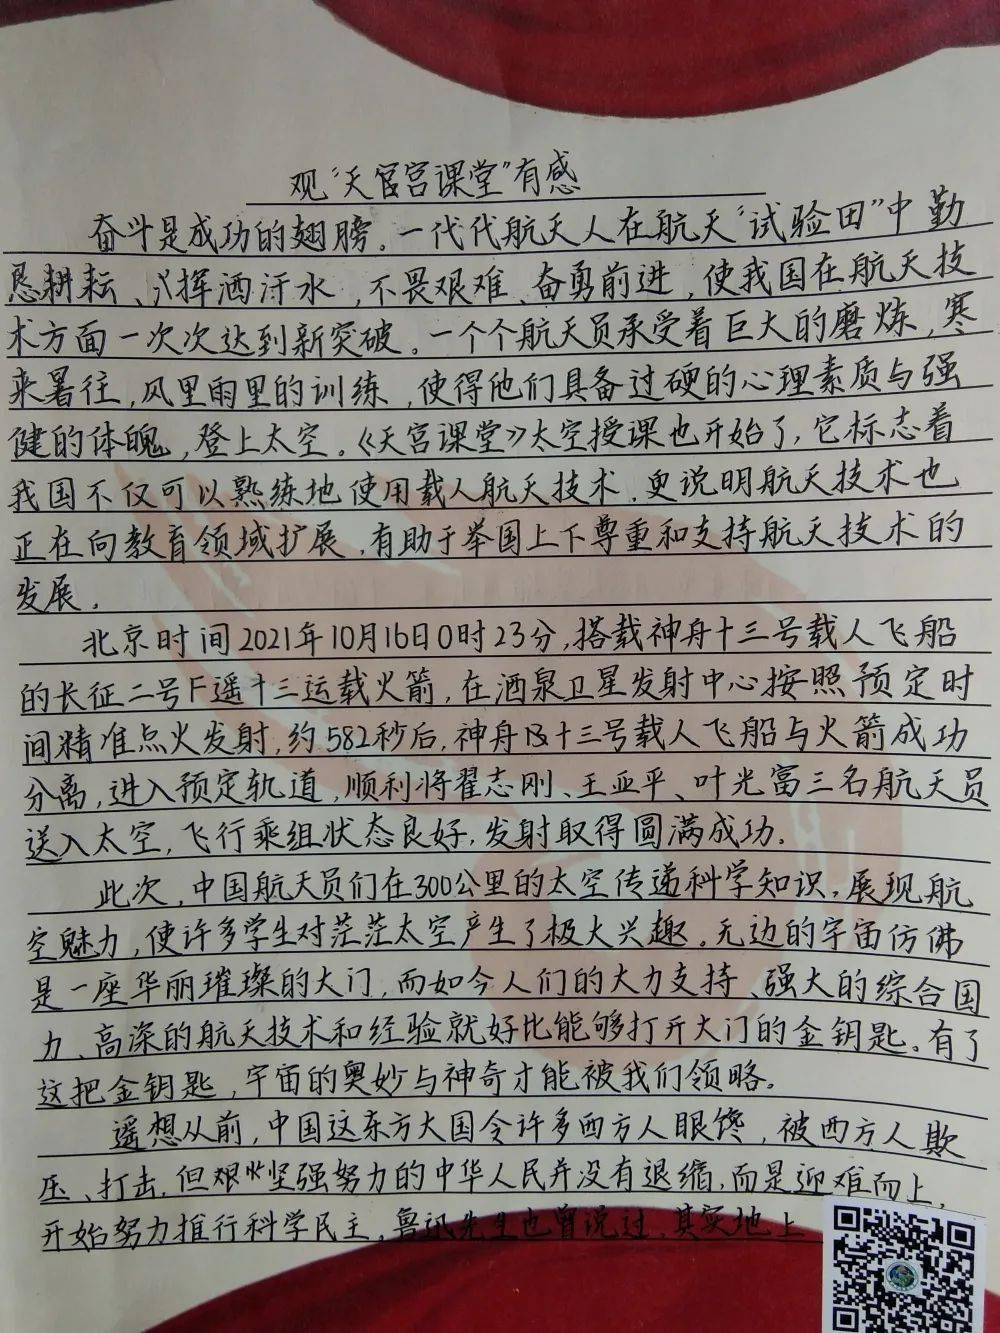 观“天宫宫课堂”有感
奋斗是成功的翅膀。一代代航天人在航天“试验田”中勤
恳耕耘、挥洒汗水，不畏艰难、奋勇前进，使我国在航天技
术方面一次次达到新突破。一个个航天员承受着巨大的磨炼，寒
来暑往，风里雨里的训练，使得他们具备过硬的心理素质与强
健的体魄，登上太空。《天宫课堂》太空授课也开始了，它标志着
我国不仅可以熟练地使用载人航天技术，更说明航天技术也
正在向教育领域扩展，有助于举国上下尊重和支持航天技术的
发展。
北京时间2021年10月16日0时23分，搭载神舟十三号载人飞船
的长征二号F遥十三运载火箭，在酒泉卫星发射中心按照预定时
间精准点火发射，约582秒后，神舟十三号载人飞船与火箭成功
分离，进入预定轨道，顺利将翟志刚、王亚平、叶光富三名航天员
送入太空，飞行乘组状态良好，发射取得圆满成功。
此次，中国航天员们在300公里的太空传递科学知识，展现航
空魅力，使许多学生对茫茫太空产生了极大兴趣。无边的宇宙仿佛
是一座华丽璀璨的大门，而如今人们的大力支持、强大的综合国
力、高深的航天技术和经验就好比能够打开大门的金钥匙。有了
这把金钥匙，宇宙的奥妙与神奇才能被我们领略。
遥想从前，中国这东方大国令许多西方人眼馋，被西方人欺
压、打击，但艰坚强努力的中华人民并没有退缩，而是迎难而上，
开始努力推行科学民主。鲁迅先生也曾说过，其实地上